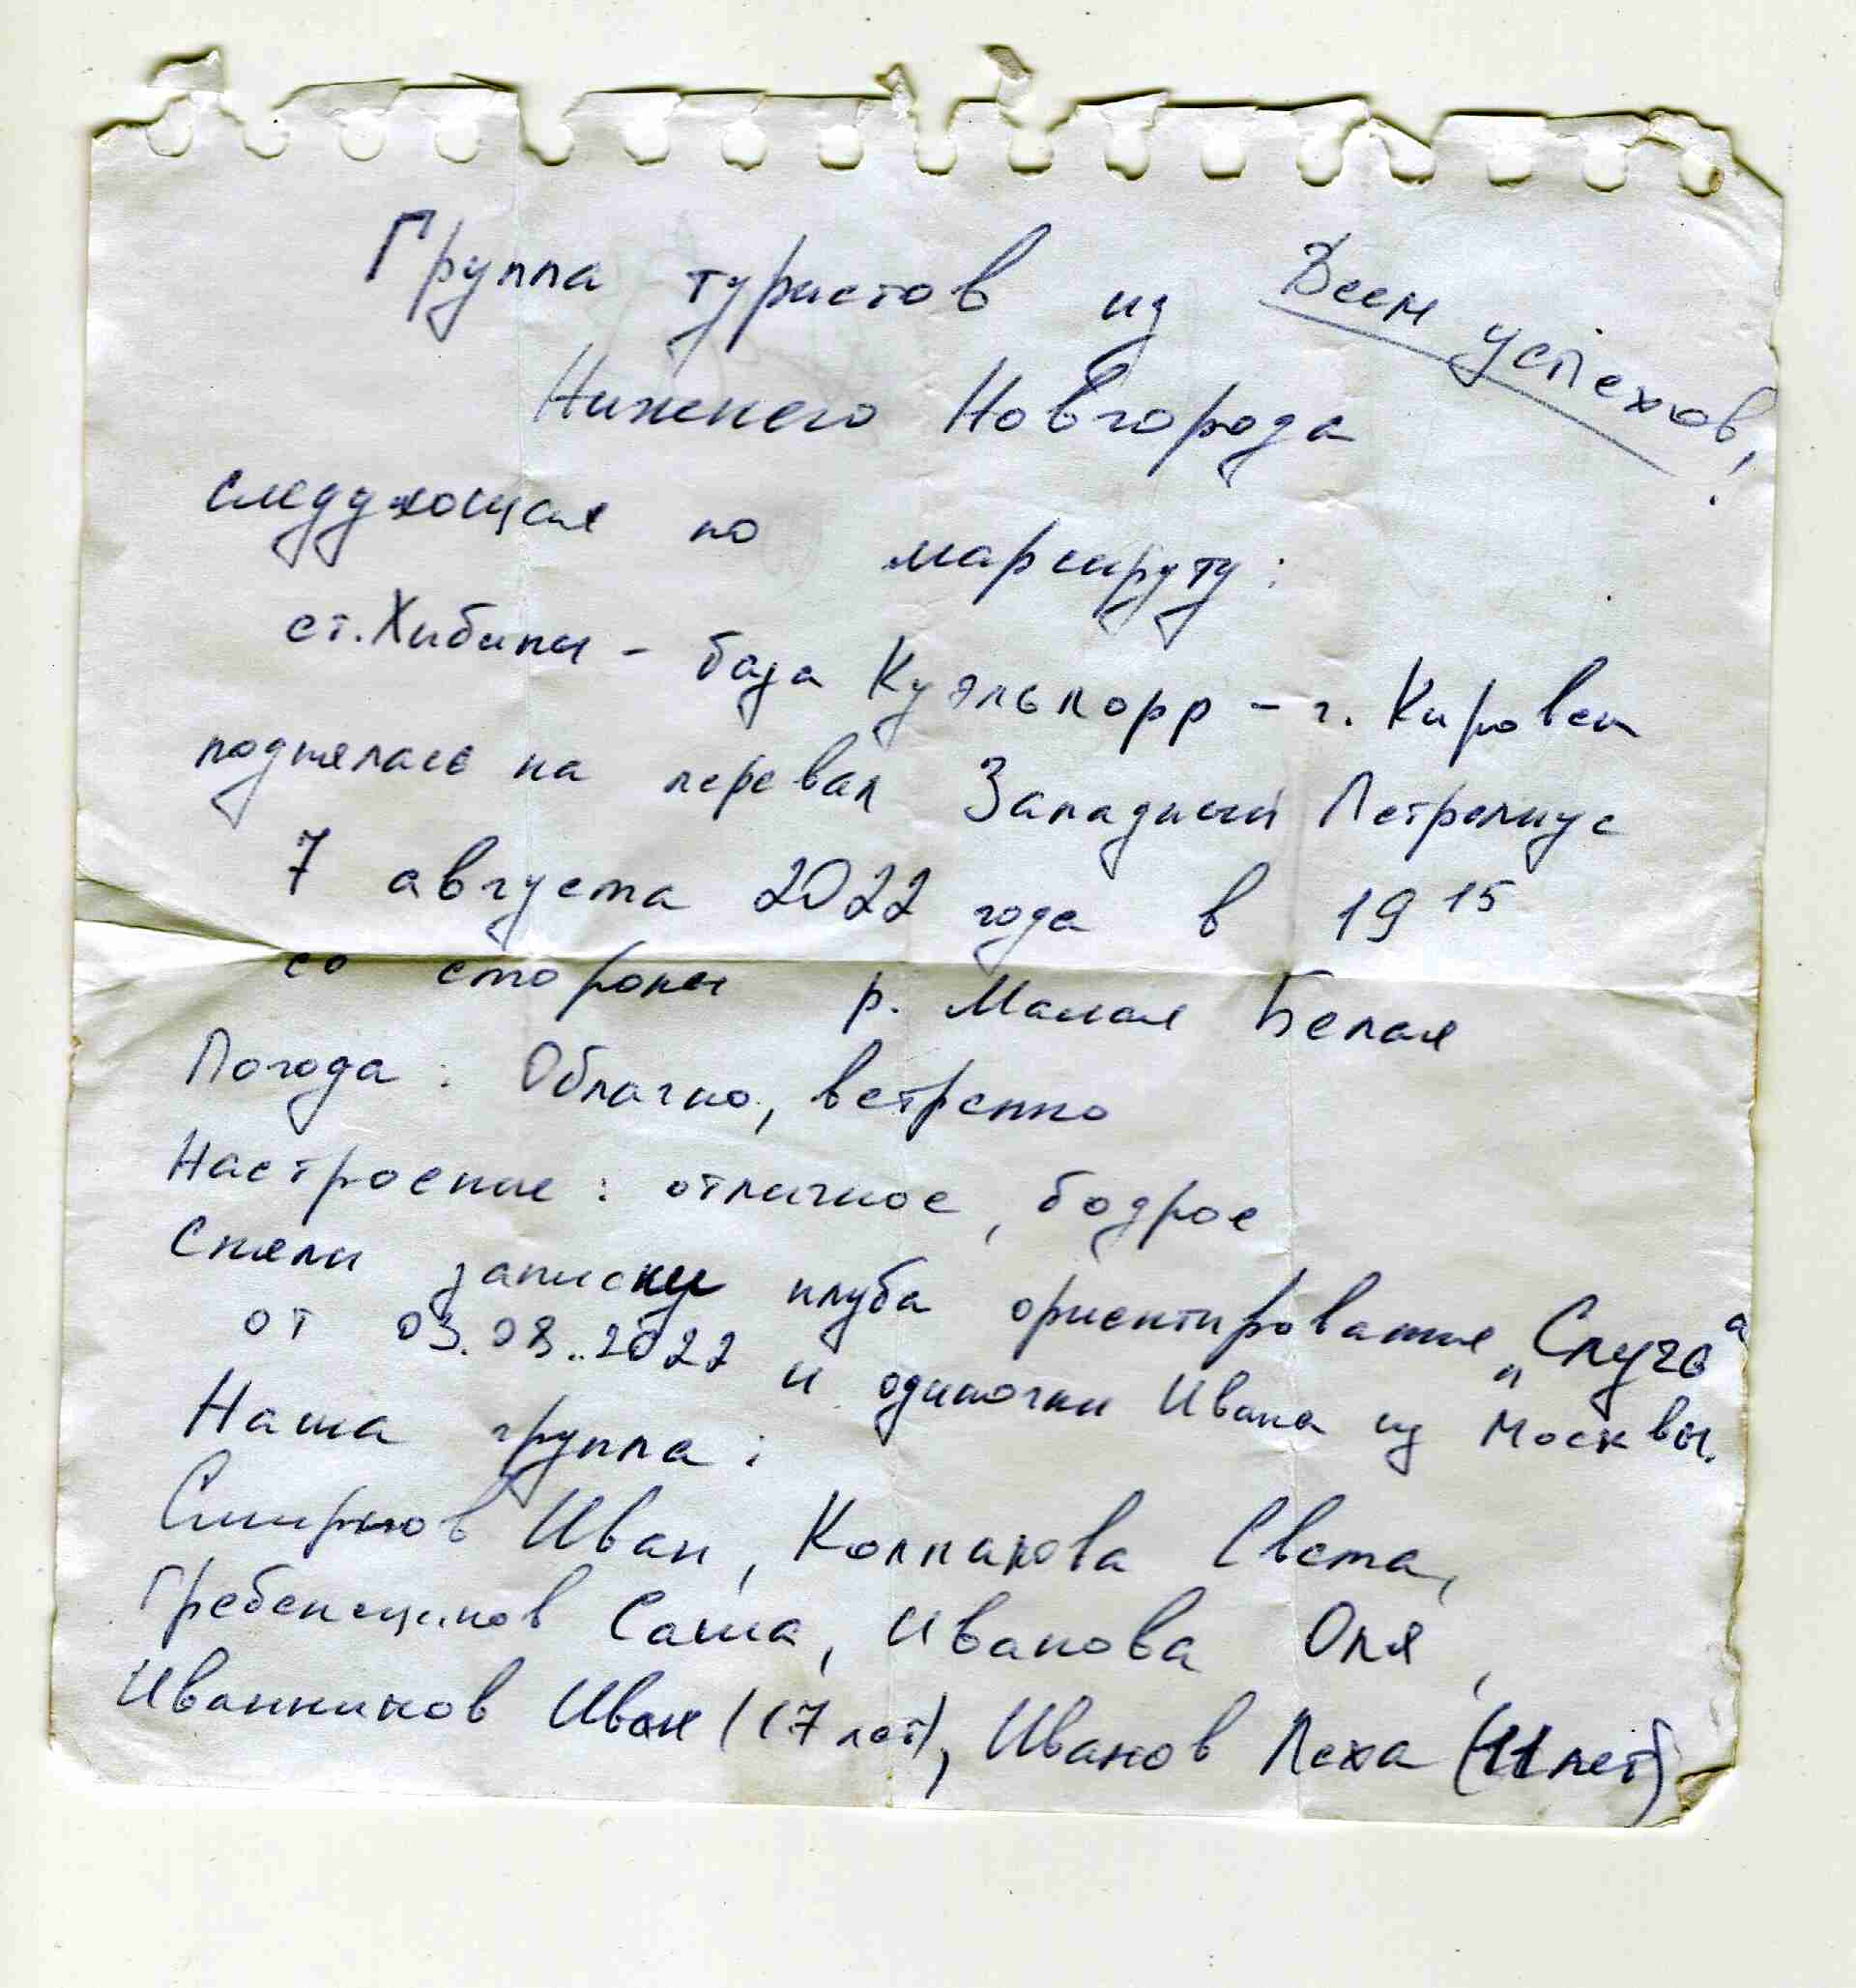 Группа туристов из
Всем успехов!
Нижнего Новгорода
следующая по маршруту:
ст. Хибины - база Куэльпорр - г. Кировск
поднялась на перевал Западный Петрелиус
7 августа 2022 года в 19 15
со стороны р. Малая Белая
Погода: Облачно, ветренно
Настроение: отличное, бодрое
Сняли записку клуба ориентирования
от 03.08.2022 и одиночки Ивана из Москвы.
Наша группа:
Смирнов Иван, Колпакова Света,
Гребенщиков Саша, Иванова Оля,
Иванников Иван (17 лет), Иванов Леха (11 лет)